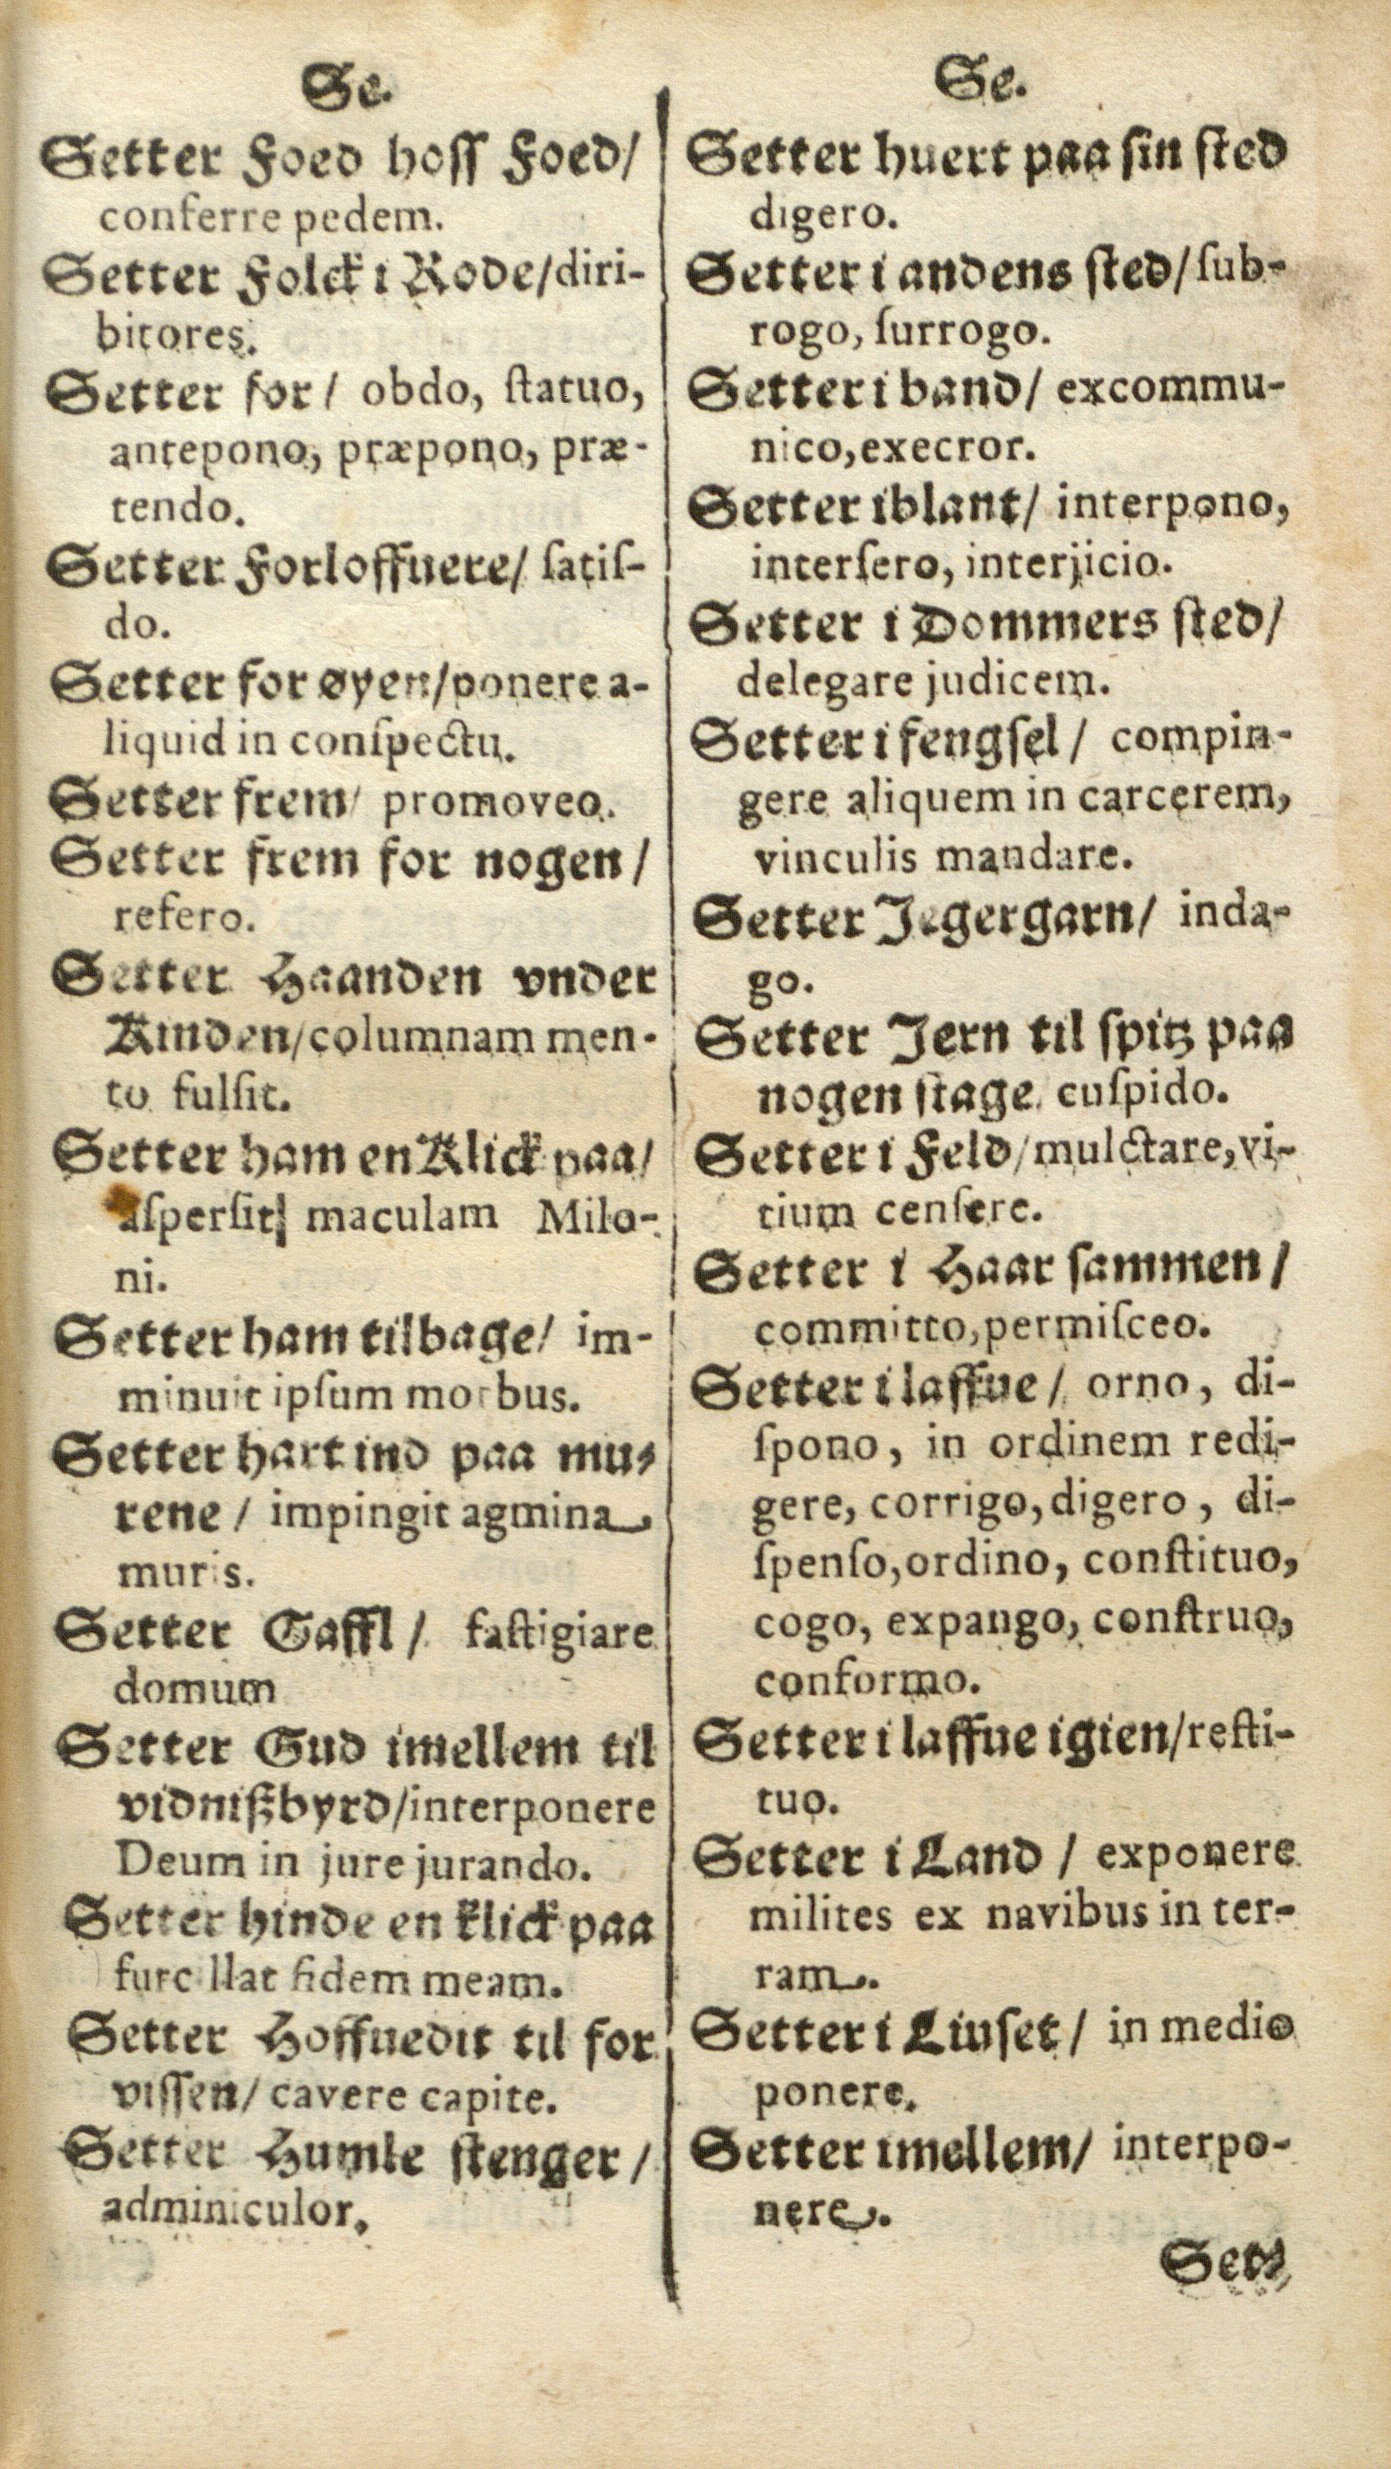 Se.
Setter Foed hoſſ Foed/
conferre pedem.
Setter Folck i Rode/diri-
bitores.
Setter for/ obdo, ſtatuo,
antepono, præpono, præ-
tendo.
Setter Forloffuere/ ſatiſ-
do.
Setter for øyen/ponere a-
liquid in conſpectu.
Setter frem/ promoveo.
Setter frem for nogen/
refero.
Setter Haanden vnder
Kinden/columnam men-
to fulſit.
Setter ham en Klick paa/
aſperſit maculam Milo-
ni.
Setter ham tilbage/ im-
minuit ipſum morbus.
Setter hart ind paa mu-
rene/ impingit agmina
muris.
Setter Gaffl/ faſtigiare
domum
Setter Gud imellem til
vidnißbyrd/interponere
Deum in jure jurando.
Setter hinde en klick paa
furcillat fidem meam.
Setter Hoffuedit til for
viſſen/ cavere capite.
Setter Humle ſtenger/
adminiculor.
Se.
Setter huert paa ſin ſted
digero.
Setter i andens ſted/ſub-
rogo, ſurrogo.
Setter i band/ excommu-
nico, execror.
Setter iblant/ interpono,
interſero, interjicio.
Setter i Dommers ſted/
delegare judicem.
Setter i fengſel/ compin-
gere aliquem in carcerem,
vinculis mandare.
Setter Jegergarn/ inda-
go.
Setter Jern til ſpitz paa
nogen ſtage cuſpido.
Setter i Feld/mulctare, vi-
tium cenſere.
Setter i Haar ſammen/
committo, permiſceo.
Setter i laffue/ orno, di-
ſpono, in ordinem redi-
gere, corrigo, digero, di-
ſpenſo, ordino, conſtituo,
cogo, expango, conſtruo,
conformo.
Setter i laffue igien/reſti-
tuo.
Setter i Land/ exponere
milites ex navibus in ter-
ram.
Setter i Liuſet/ in medio
ponere.
Setter imellem/ interpo-
nere.
Set-